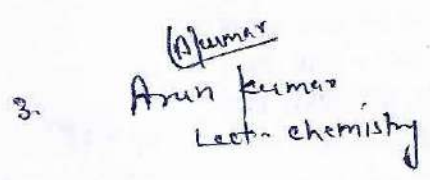 (A)kumar
3. Arun kumar
Lect- chemistry